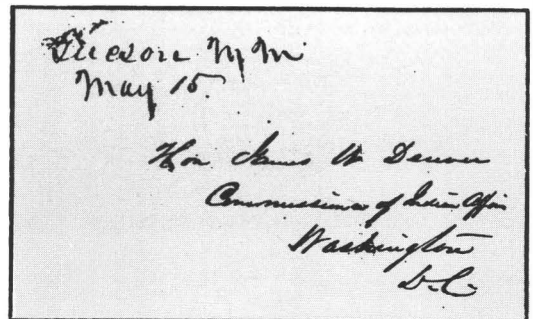 Tucson N M
May 15.
Hon James W Denver
Commissioner of Indian Affairs
Washington
D.C.